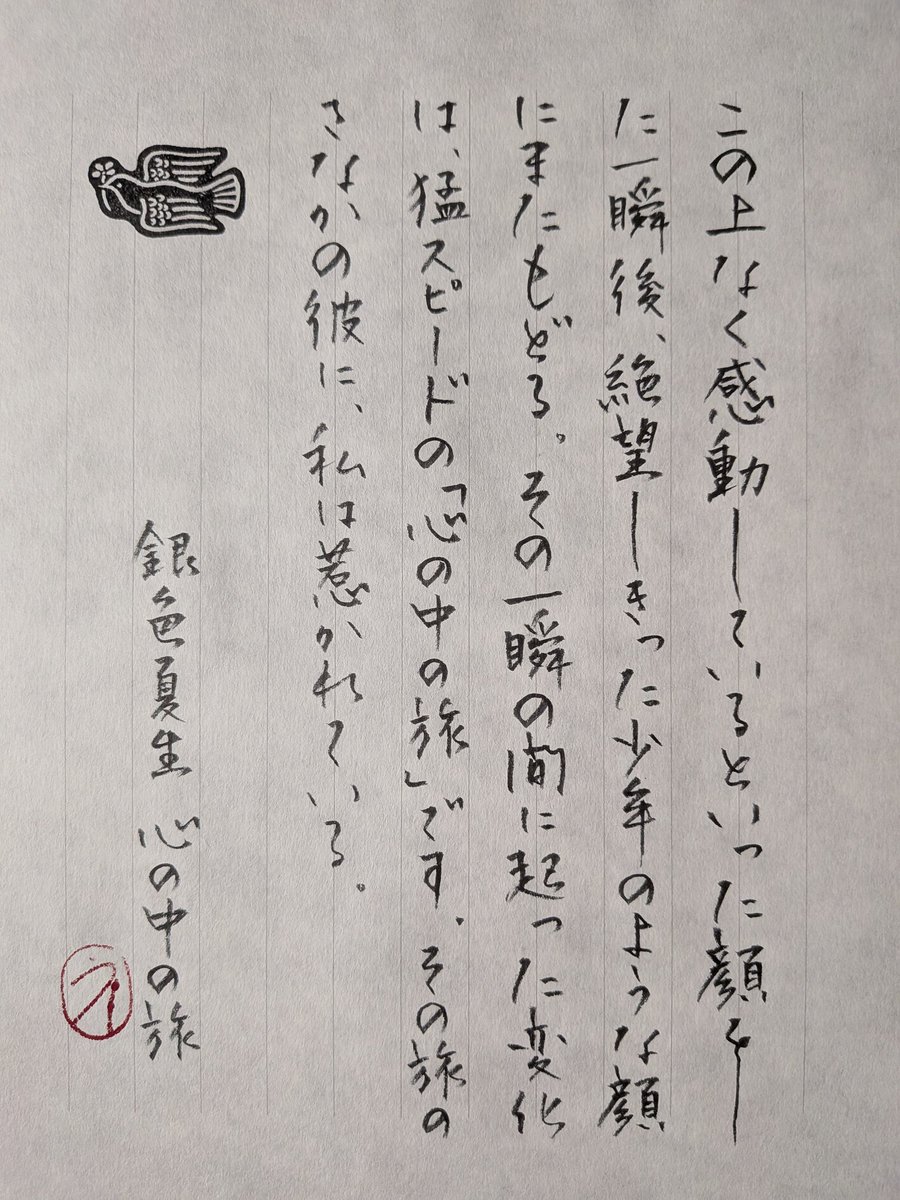 この上なく感動しているといった顔をし
た一瞬後、絶望しきった少年のような顔
にまたもどる。その一瞬の間に起った変化
は、猛スピードの「心の中の旅」です。その旅の
さなかの彼に、私は惹かれている。
銀色夏生 心の中の旅